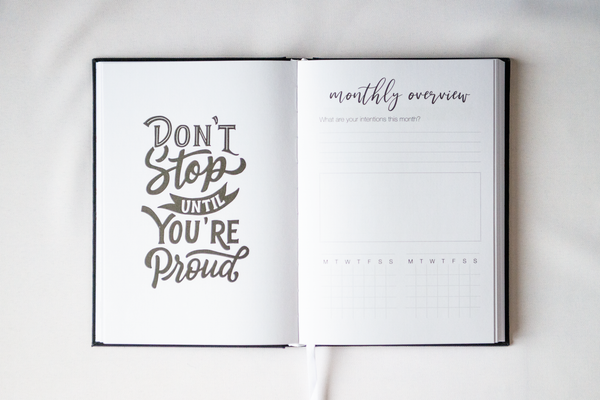 DON'T
Stop
UNTIL
YOU'RE
Proud
monthly overview
What are your intentions this month?
M T W T F S S M T W T F S S